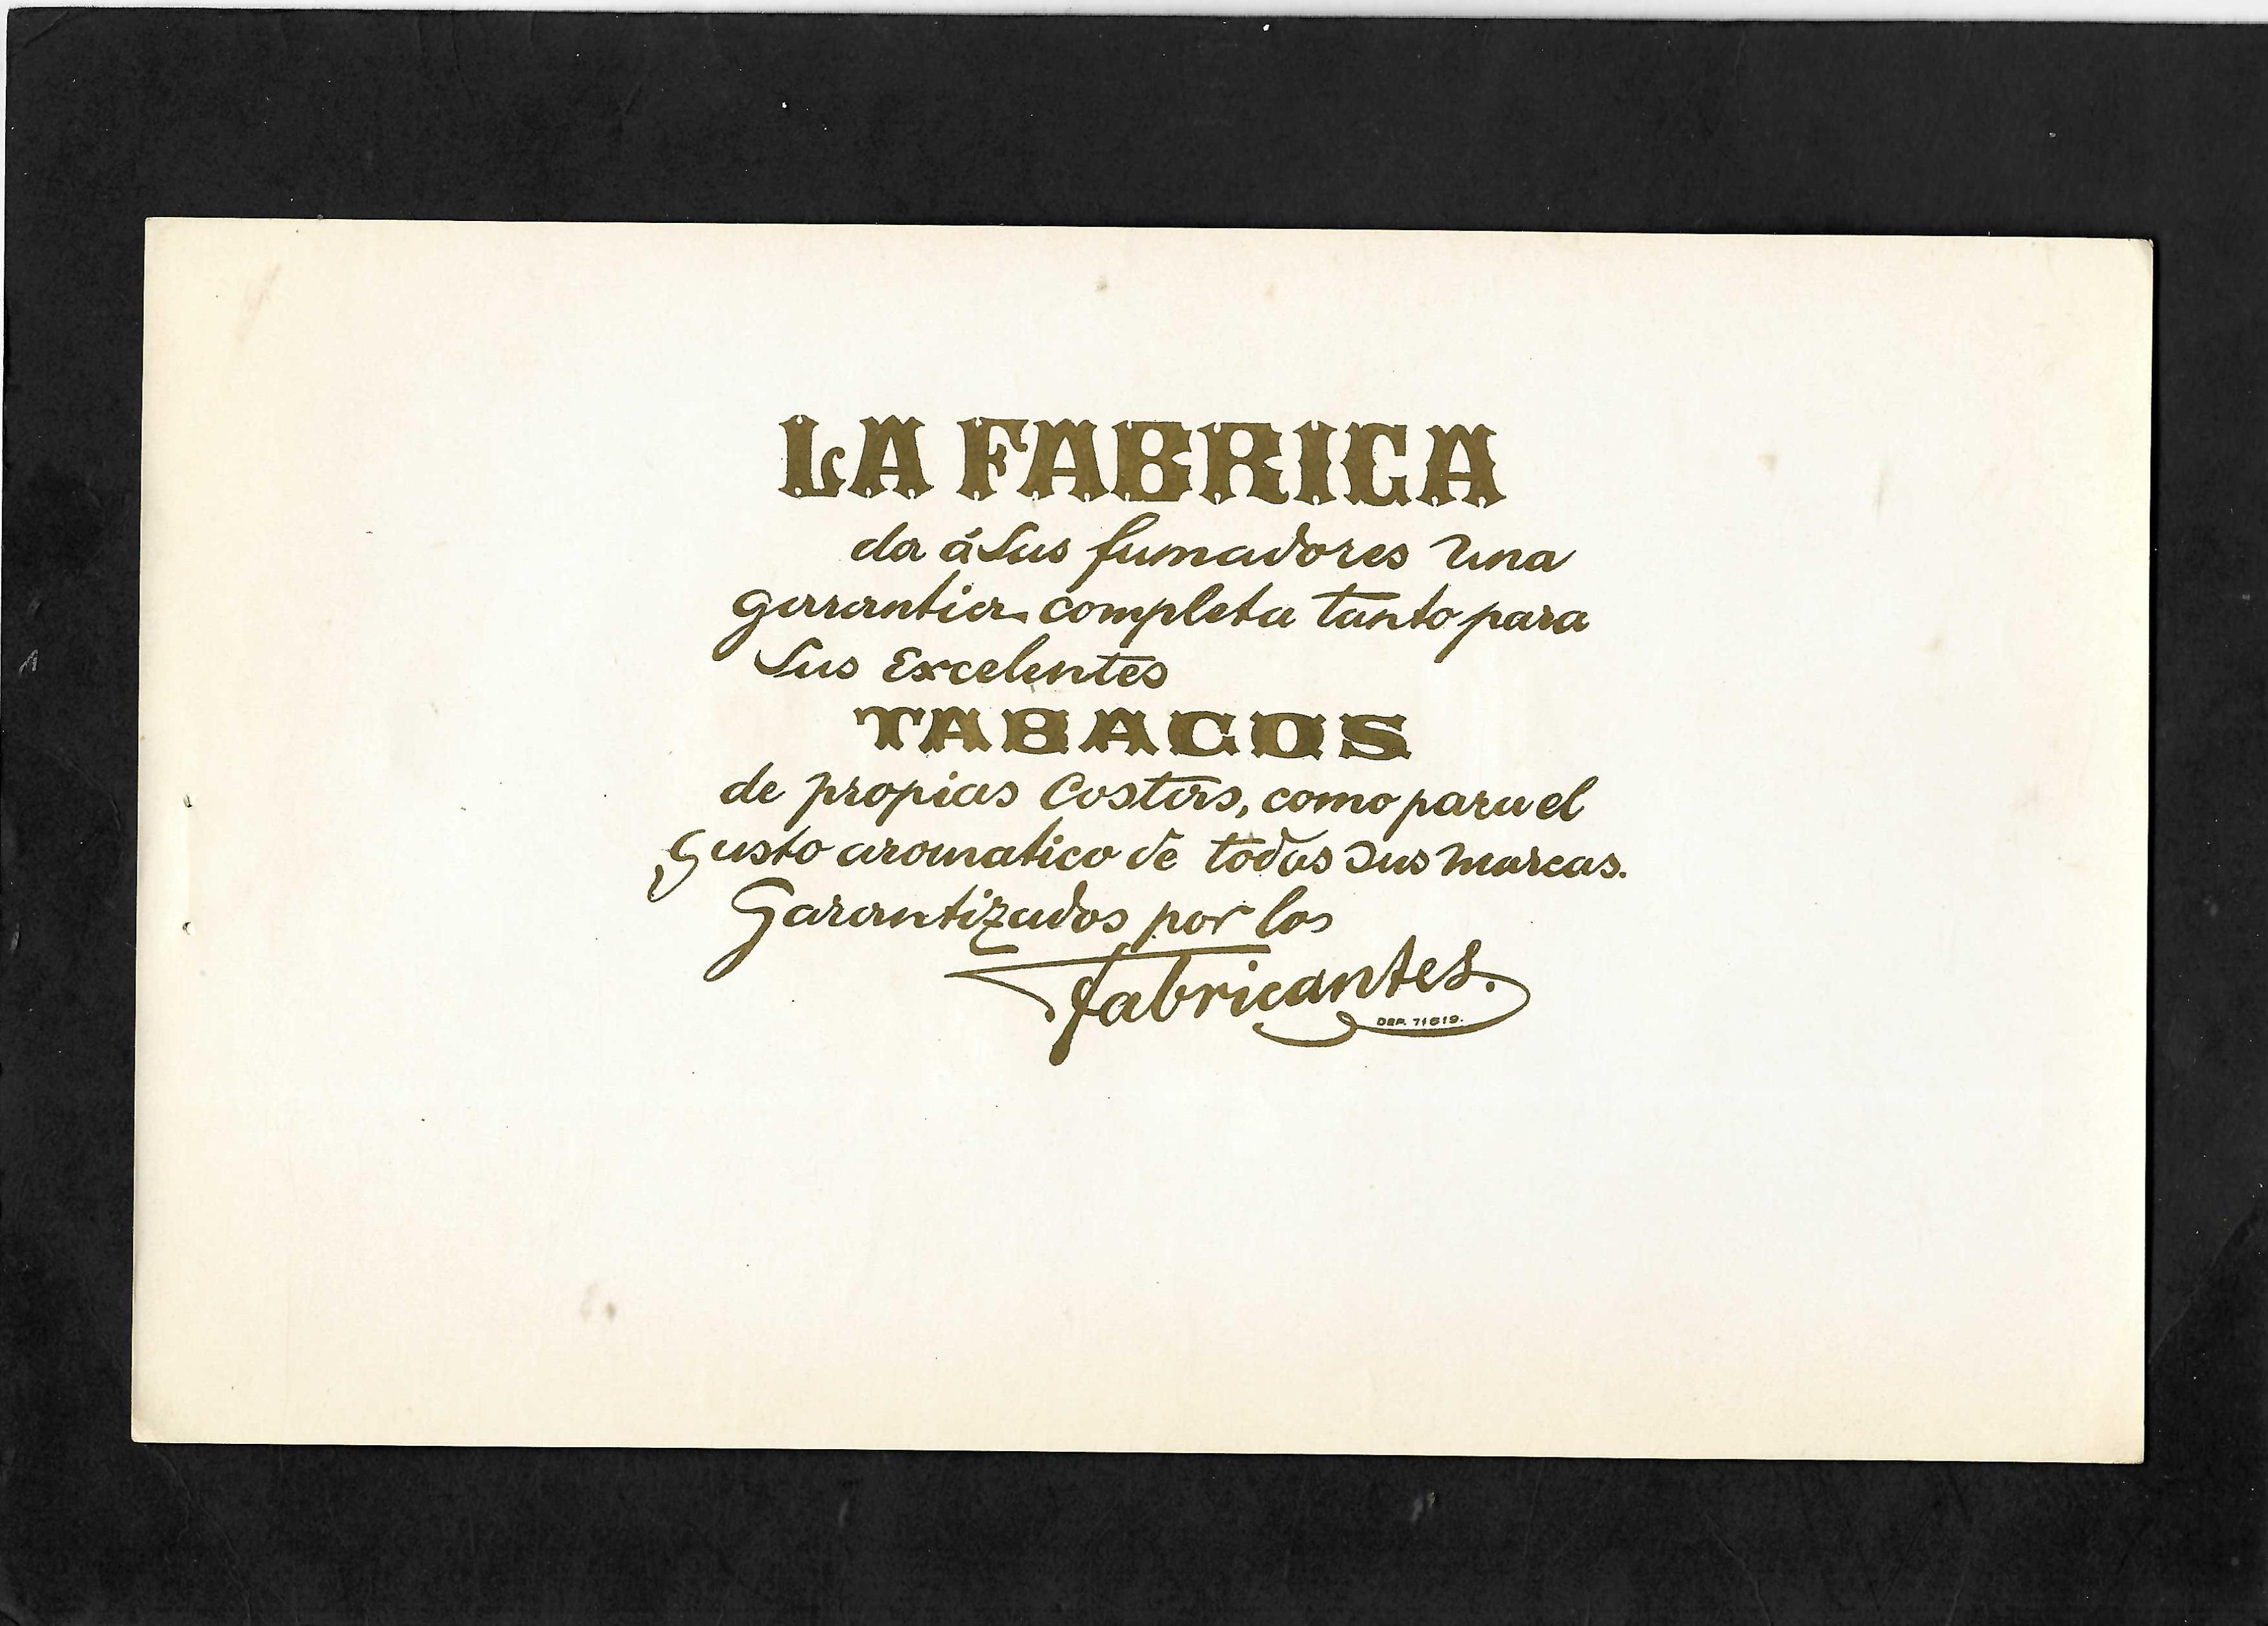 LA FABRICA
da á sus fumadores una
garantia completa tanto para
sus Excelentes
TABACOS
de propias Costas, como para el
gusto aromatico de todas sus marcas.
Garantizados por los
fabricantes.
DEP. 71619.